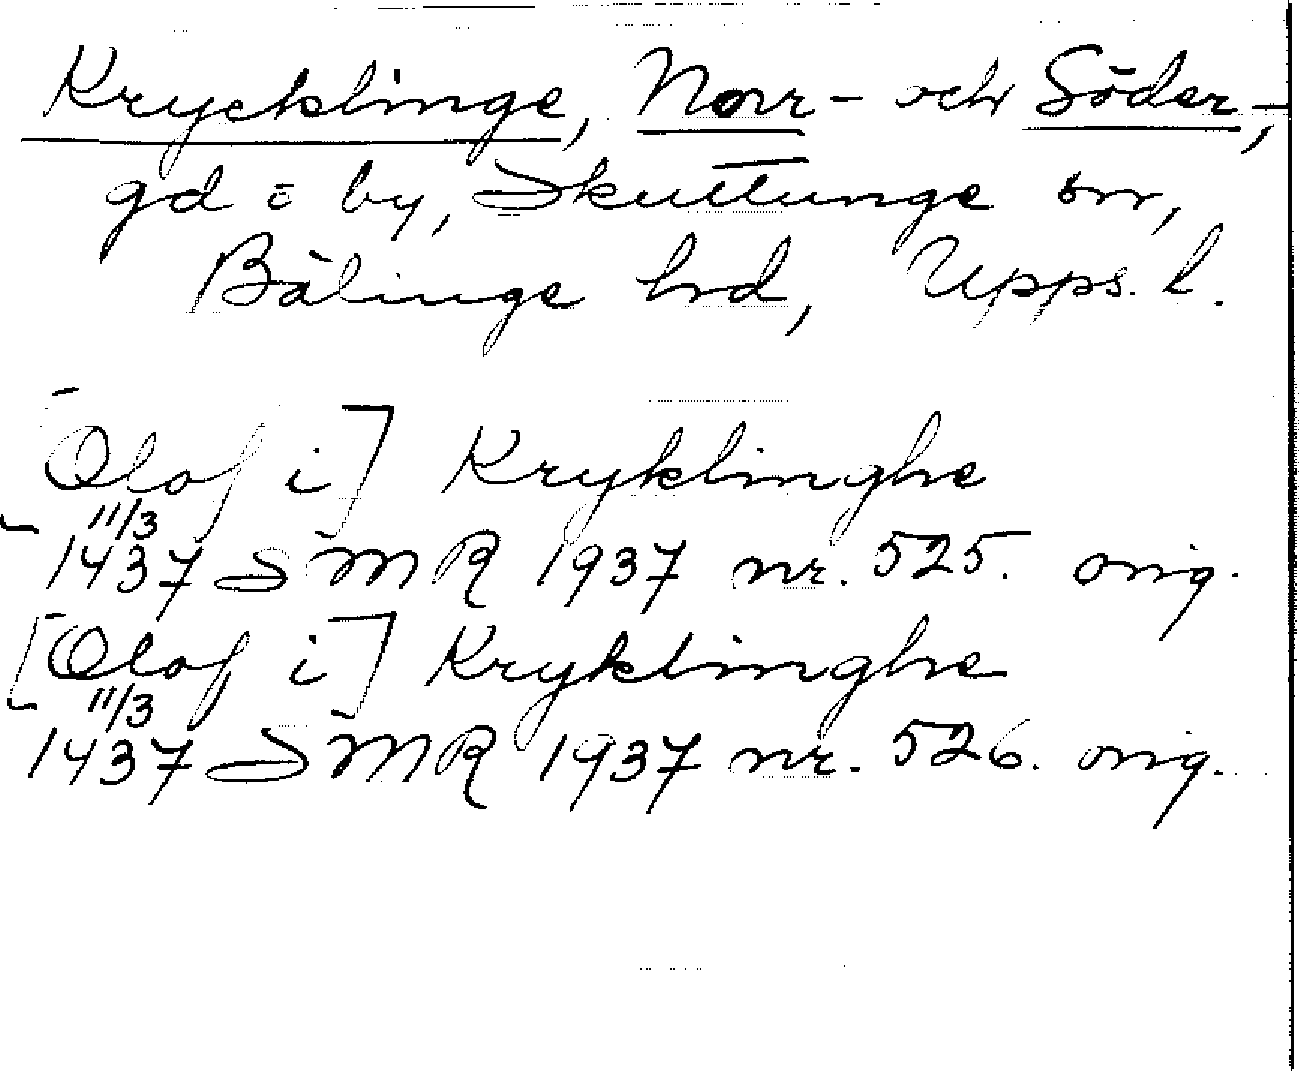 Krycklinge, Norr- och Söder-,
gd = by, Skuttunge sn,
Bälinge hrd, Upps. l.
[Olof i] Kryklinghe
11/3
1437 SMR 1937 nr. 525. orig.
[Olof i] Kryklinghe
11/3
1437 SMR 1937 nr. 526. orig.